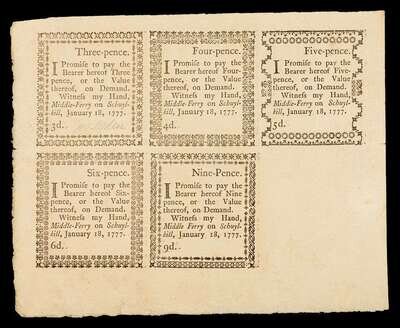 Three-pence.
I Promiſe to pay the
Bearer hereof Three
pence, or the Value
thereof, on Demand.
Witneſs my Hand,
Middle-Ferry on Schuyl-
kill, January 18, 1777.
3d.
Four-pence.
I Promiſe to pay the
Bearer hereof Four-
pence, or the Value
thereof, on Demand.
Witneſs my Hand,
Middle-Ferry on Schuyl-
kill, January 18, 1777.
4d.
Five-pence.
I Promiſe to pay the
Bearer hereof Five-
pence, or the Value
thereof, on Demand.
Witneſs my Hand,
Middle-Ferry on Schuyl-
kill, January 18, 1777.
5d.
Six-pence.
I Promiſe to pay the
Bearer hereof Six-
pence, or the Value
thereof, on Demand.
Witneſs my Hand,
Middle-Ferry on Schuyl-
kill, January 18, 1777.
6d.
Nine-Pence.
I Promiſe to pay the
Bearer hereof Nine
pence, or the Value
thereof, on Demand.
Witneſs my Hand,
Middle-Ferry on Schuyl-
kill, January 18, 1777.
9d.